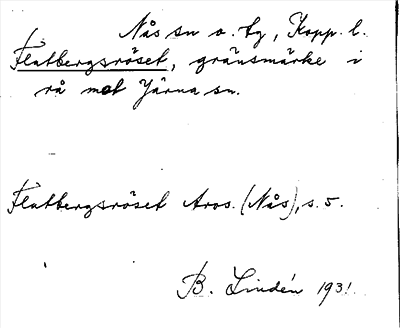 Nås sn o. tg, Kopp. l.
Flatbergsröset, gränsmärke i
rå mot Järna sn.
Flatbergsröset Aros. (Nås), s. 5.
B. Lindén 1931.